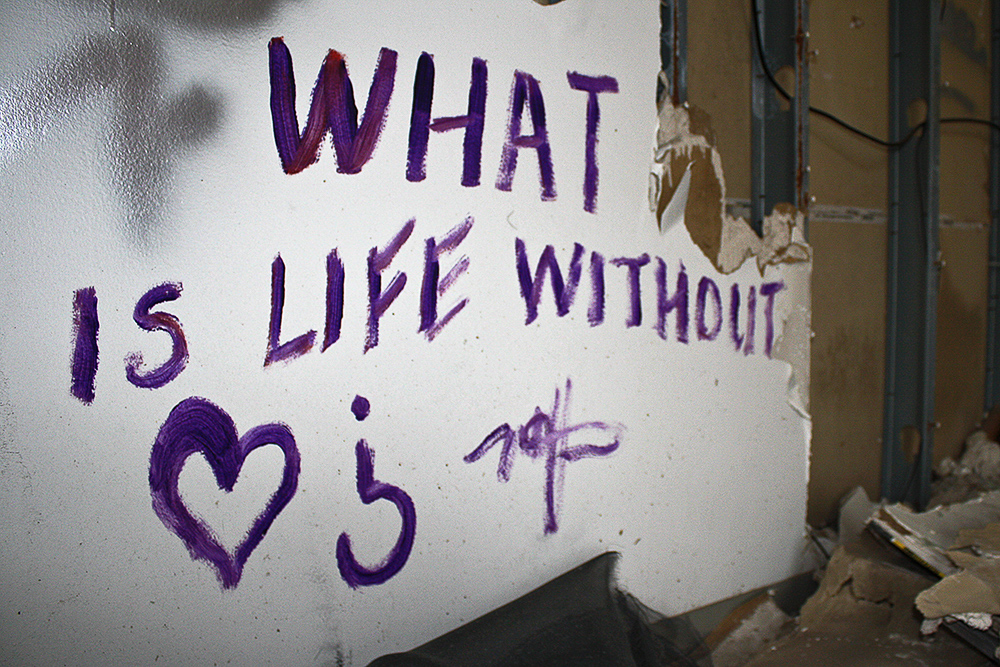 WHAT
IS LIFE WITHOUT
♡ ¿